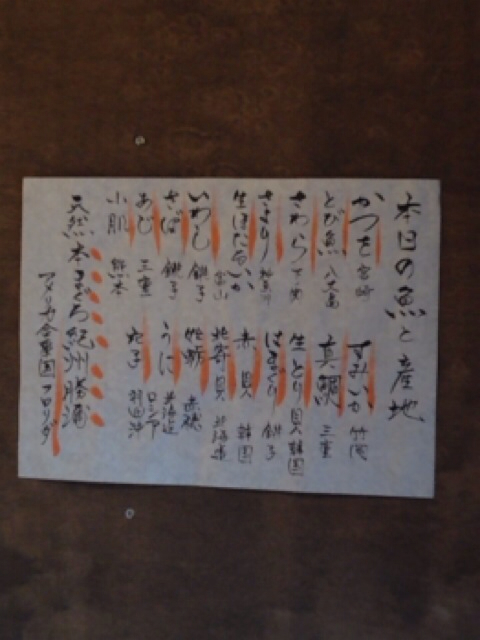 本日の魚と産地
かつを 宮崎
すみいか 竹岡
とび魚 八丈島
真鯛 三重
さわら
生とり貝 韓国
さより
はまぐり 銚子
生ほたるいか 富山
赤貝 韓国
いわし 銚子
北寄貝 北海道
さば 銚子
あじ 三重
うに 北海道 ロシア
小肌 熊本
穴子 羽田沖
天然本まぐろ 紀州勝浦
アメリカ合衆国フロリダ